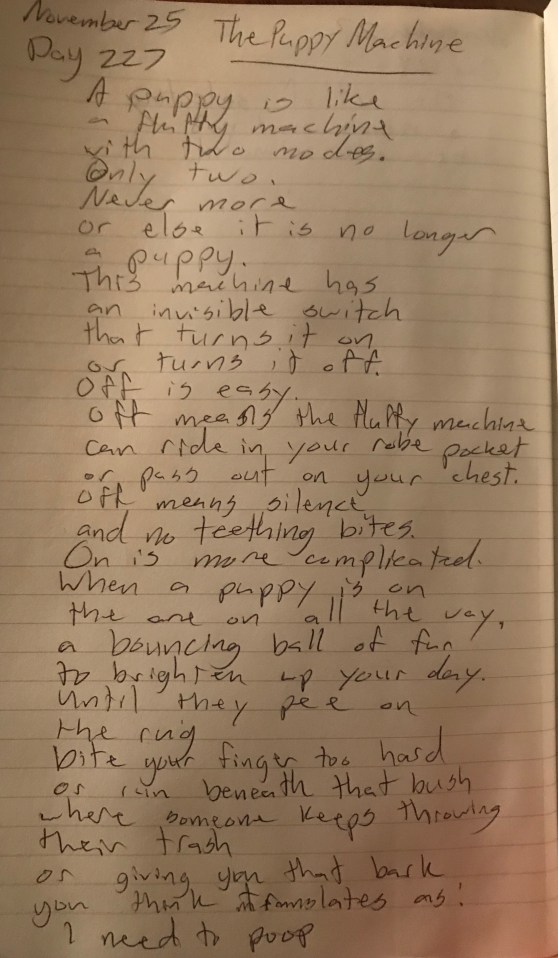 November 25
The Puppy Machine
Day 227
A puppy is like
a fluffy machine
with two modes.
Only two.
Never more
or else it is no longer
a puppy.
This machine has
an invisible switch
that turns it on
or turns it off.
Off is easy.
Off means the fluffy machine
can ride in your robe pocket
or pass out on your chest.
Off means silence
and no teething bites.
On is more complicated.
When a puppy is on
the are on all the way,
a bouncing ball of fun
to brighten up your day.
Until they pee on
the rug
bite your finger too hard
or run beneath that bush
where someone keeps throwing
their trash
or giving you that bark
you think translates as:
I need to poop